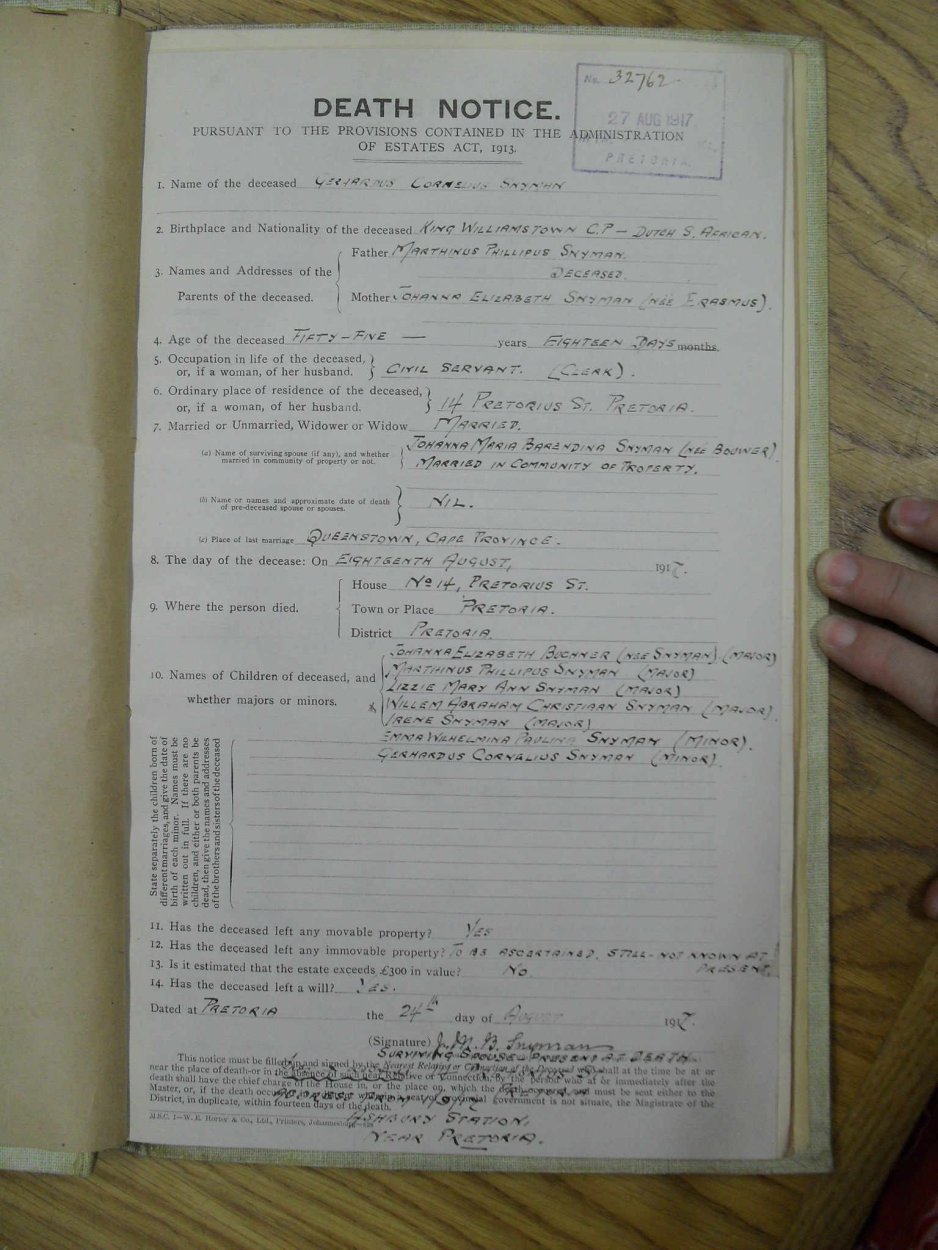 No. 32762
27 AUG 1917
PRETORIA
DEATH NOTICE.
PURSUANT TO THE PROVISIONS CONTAINED IN THE ADMINISTRATION
OF ESTATES ACT, 1913.
1. Name of the deceased GERHARDUS CORNELIUS SNYMAN
2. Birthplace and Nationality of the deceased KING WILLIAMSTOWN C.P – DUTCH S. AFRICAN.
3. Names and Addresses of the Parents of the deceased.
Father MARTHINUS PHILLIPUS SNYMAN.
DECEASED.
Mother JOHANNA ELIZABETH SNYMAN (NÉE ERASMUS).
4. Age of the deceased FIFTY-FIVE — years EIGHTEEN DAYS months.
5. Occupation in life of the deceased,
or, if a woman, of her husband. CIVIL SERVANT. (CLERK).
6. Ordinary place of residence of the deceased,
or, if a woman, of her husband. 14 PRETORIUS ST. PRETORIA.
7. Married or Unmarried, Widower or Widow MARRIED.
(a) Name of surviving spouse (if any), and whether
married in community of property or not.
JOHANNA MARIA BARENDINA SNYMAN (NÉE BOUWER)
MARRIED IN COMMUNITY OF PROPERTY.
(b) Name or names and approximate date of death
of pre-deceased spouse or spouses. NIL.
(c) Place of last marriage QUEENSTOWN, CAPE PROVINCE.
8. The day of the decease: On EIGHTEENTH AUGUST, 1917.
9. Where the person died.
House No 14, PRETORIUS ST.
Town or Place PRETORIA.
District PRETORIA.
10. Names of Children of deceased, and
whether majors or minors.
JOHANNA ELIZABETH BUCHNER (NÉE SNYMAN) (MAJOR)
MARTHINUS PHILLIPUS SNYMAN (MAJOR)
LIZZIE MARY ANN SNYMAN (MAJOR)
WILLEM ABRAHAM CHRISTIAAN SNYMAN (MAJOR).
IRENE SNYMAN (MAJOR)
EMMA WILHELMINA PAULINA SNYMAN (MINOR).
GERHARDUS CORNELIUS SNYMAN (MINOR).
State separately the children born of
different marriages, and give the date of
birth of each minor. Names must be
written out in full. If there are no
children, and either or both parents be
dead, then give the names and addresses
of the brothers and sisters of the deceased
11. Has the deceased left any movable property? YES
12. Has the deceased left any immovable property? TO BE ASCERTAINED. STILL-NOT KNOWN AT
PRESENT.
13. Is it estimated that the estate exceeds £300 in value? NO.
14. Has the deceased left a will? YES.
Dated at PRETORIA the 24th day of AUGUST 1917.
(Signature) J. M. B. Snyman
SURVIVING SPOUSE. PRESENT AT DEATH
This notice must be filled up and signed by the Nearest Relative or Connection of the Deceased who shall at the time be at or
near the place of death-or in the absence of such near Relative or Connection, by the person who at or immediately after the
death shall have the chief charge of the House in, or the place on, which the death occurred, and must be sent either to the
Master, or, if the death occurred in a seat of provincial government is not situate, the Magistrate of the
District, in duplicate, within fourteen days of the death.
M.S.C. 1—W. E. Hortor & Co., Printers, Johannesburg
ASHBURY STATION,
NEAR PRETORIA.